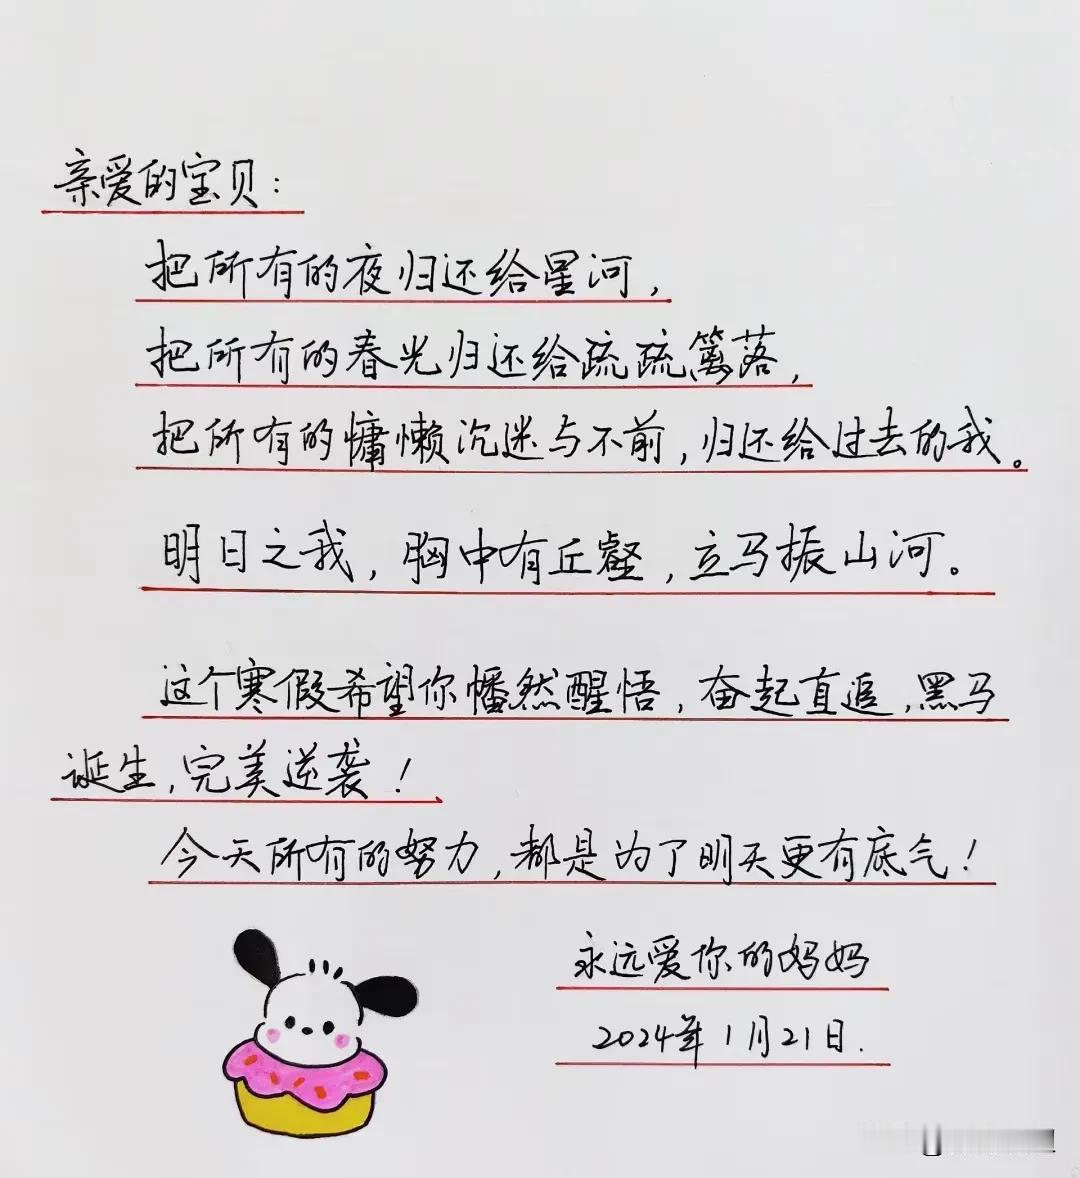 亲爱的宝贝：
把所有的夜归还给星河，
把所有的春光归还给疏疏篱落，
把所有的慵懒沉迷与不前，归还给过去的我。
明日之我，胸中有丘壑，立马振山河。
这个寒假希望你幡然醒悟，奋起直追，黑马
诞生，完美逆袭！
今天所有的努力，都是为了明天更有底气！
永远爱你的妈妈
2024年1月21日.